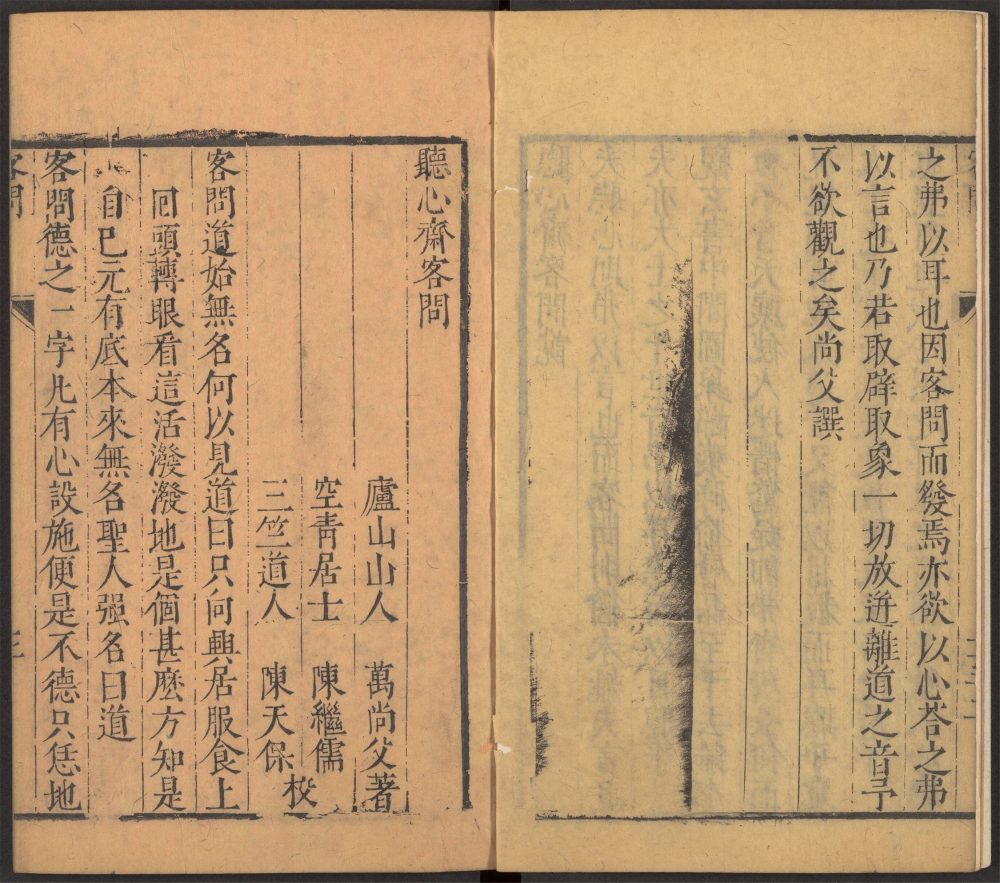 之弗以耳也因客問而發焉亦欲以心荅之弗
以言也乃若取辟取象一切放迸離道之音予
不欲觀之矣尚父譔
聽心齋客問
廬山山人 萬尚父著
空青居士 陳繼儒
三竺道人 陳天保
校
客問道始無名何以見道曰只向興居服食上
回頭轉眼看這活潑潑地是個甚麼方知是
自巳元有底本來無名聖人强名曰道
客問德之一字凢有心設施便是不德只恁地
客問
三